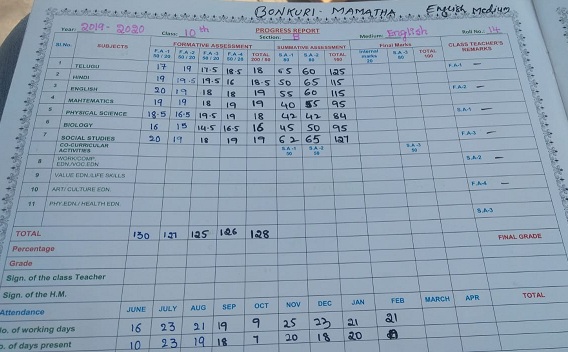 BONKURI - MAMATHA English Medium
PROGRESS REPORT
Year: 2019 - 2020 Class: 10th Section: B Medium: English Roll No.: 14
Sl.No. SUBJECTS FORMATIVE ASSESSMENT SUMMATIVE ASSESSMENT Final Marks CLASS TEACHER'S REMARKS
F.A-1 F.A-2 F.A-3 F.A-4 TOTAL S.A-1 S.A-2 TOTAL Internal marks S.A-3 TOTAL
1 TELUGU 17 19 17.5 18.5 18 65 60 125 F.A-1 -
2 HINDI 19 19.5 19.5 16 18.5 50 65 115
3 ENGLISH 20 19 18 18 19 55 60 115 F.A-2 -
4 MAHTEMATICS 19 19 18 19 19 40 55 95
5 PHYSICAL SCIENCE 18.5 16.5 19.5 19 18 42 42 84 S.A-1 -
6 BIOLOGY 16 15 14.5 16.5 16 45 50 95
7 SOCIAL STUDIES 20 19 18 19 19 62 65 127 F.A-3 -
CO-CURRICULAR ACTIVITIES S.A-1 S.A-2 S.A-3
8 WORK/COMP. EDN./VOC.EDN. S.A-2 -
9 VALUE EDN./LIFE SKILLS
10 ART/ CULTURE EDN. F.A-4 -
11 PHY.EDN./ HEALTH EDN.
S.A-3
TOTAL 130 127 125 126 128 FINAL GRADE
Percentage
Grade
Sign. of the class Teacher
Sign. of the H.M.
Attendance JUNE JULY AUG SEP OCT NOV DEC JAN FEB MARCH APR TOTAL
No. of working days 16 23 21 19 9 25 23 21 21
No. of days present 10 23 19 18 7 20 18 20